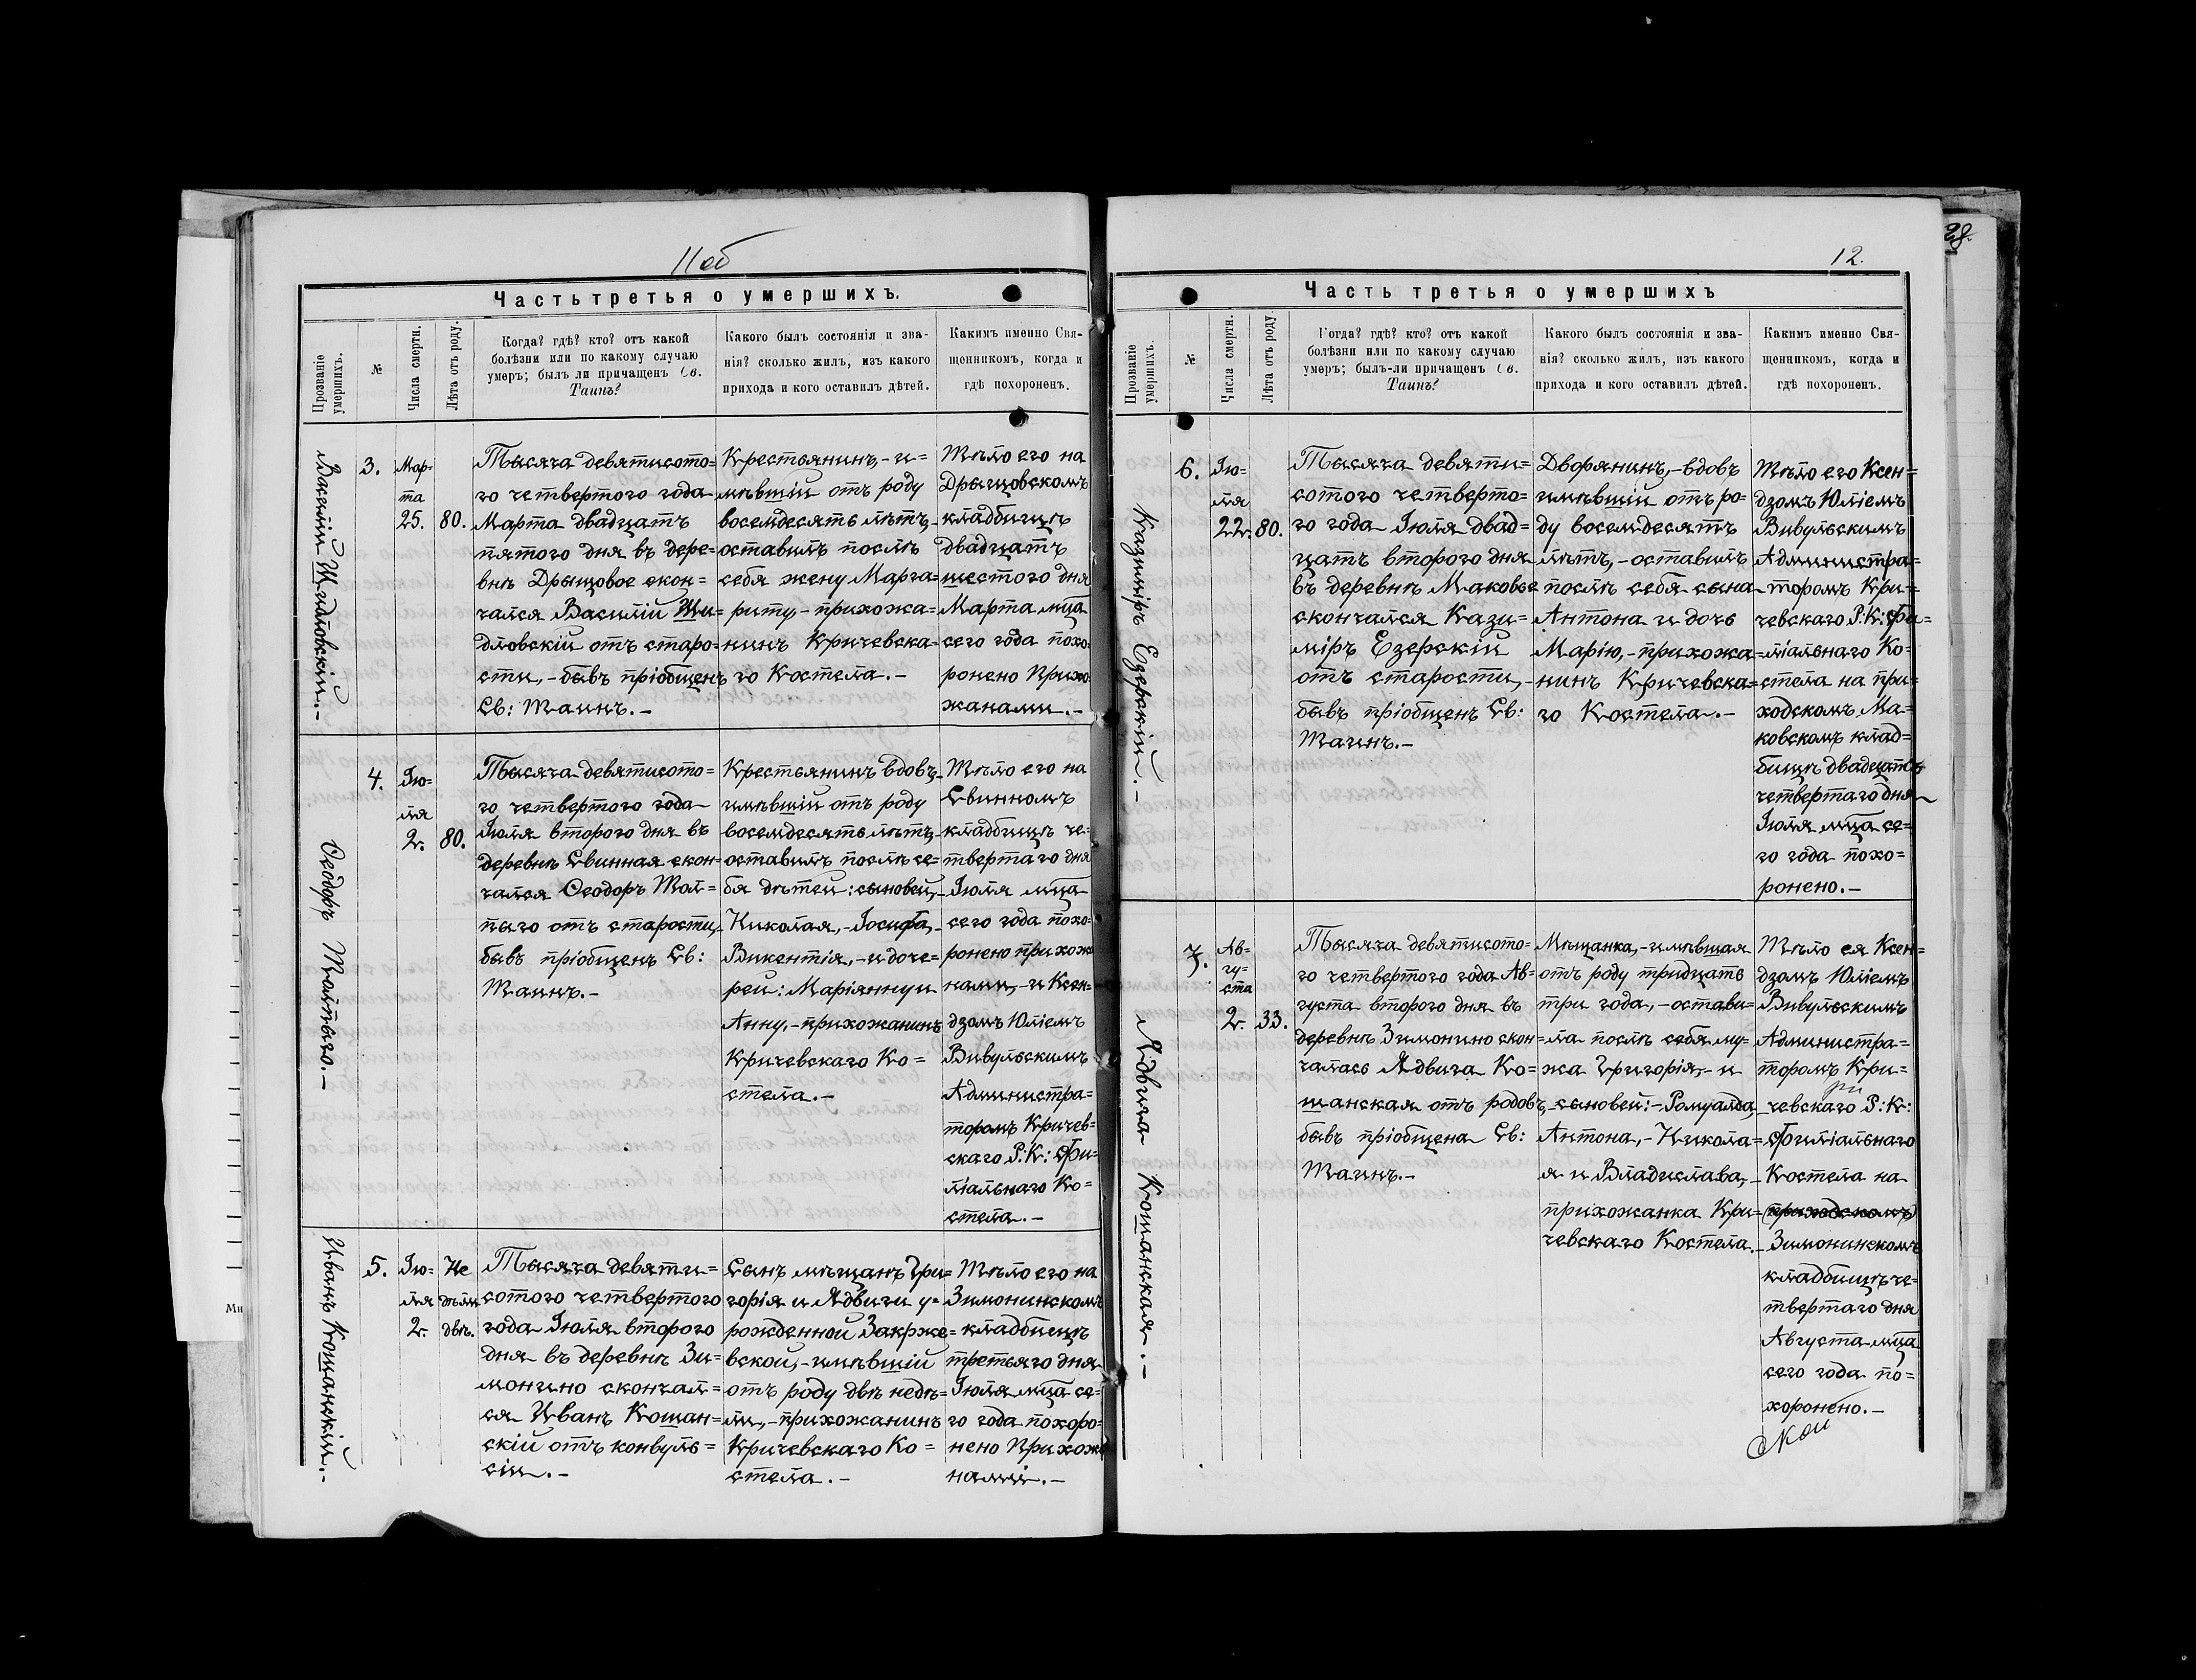 11об
Часть третья о умершихъ.
Прозваніе умершихъ.
№
Числа смерти.
Лѣта отъ роду.
Когда? гдѣ? кто? отъ какой
болѣзни или по какому случаю
умеръ; былъ ли причащенъ Св.
Таинъ?
Какого былъ состоянія и зва-
нія? сколько жилъ, изъ какого
прихода и кого оставилъ дѣтей.
Какимъ именно Свя-
щенникомъ, когда и
гдѣ похороненъ.
Василій Шидловскій.-
3.
Мар-
та
25.
80.
Тысяча девятисото=
го четвертого года
Марта двадцать
пятого дня въ дере=
внѣ Дрыщовое скон=
чался Василій Ши=
дловскій отъ старо=
сти,- бывъ пріобщенъ
Св: Таинъ.-
Крестьянинъ,- и=
мѣвшій отъ роду
восемдесять лѣтъ,-
оставилъ послѣ
себя жену Марга=
риту,- прихожа=
нинъ Кричевска=
го Костела.-
Тѣло его на
Дрыщовскомъ
кладбищѣ
двадцать
шестого дня
Марта мца
сего года похо=
ронено Прихо=
жанами.-
Ѳеодоръ Толпыго.-
4.
Ію-
ля
2.
80.
Тысяча девятисото=
го четвертого года
Іюля второго дня въ
деревнѣ Свинная скон=
чался Ѳеодоръ Тол=
пыго отъ старости,-
бывъ пріобщенъ Св:
Таинъ.-
Крестьянинъ вдовъ,-
имѣвшій отъ роду
восемдесять лѣтъ,-
оставилъ послѣ се=
бя дѣтей: сыновей,-
Николая,- Іосифа,-
Викентія,- и доче=
рей: Маріянну и
Анну,- прихожанинъ
Кричевскаго Ко=
стела.-
Тѣло его на
Свинномъ
кладбищѣ че=
твертаго дня
Іюля мца
сего года похо=
ронено прихожа
нами,- и Ксен=
дзомъ Юліемъ
Вивульскимъ
Администра=
торомъ Кричев=
скаго Р:К: Фи=
ліальнаго Ко=
стела.-
Иванъ Кошанскій.-
5.
Ію-
ля
2.
Не
дѣли
двѣ.
Тысяча девяти=
сотого четвертого
года Іюля второго
дня въ деревнѣ Зи=
монино скончал=
ся Иванъ Кошан=
скій отъ конвуль=
сіи.-
Сынъ мѣщанъ Гри=
горія и Ядвиги у=
рожденной Закрже=
вской,- имѣвшій
отъ роду двѣ недѣ=
ли,- прихожанинъ
Кричевскаго Ко=
стела.-
Тѣло его на
Зимонинскомъ
кладбищѣ
третьяго дня
Іюля мца се=
го года похоро=
нено Прихожа
нами.-
12.
Часть третья о умершихъ
Прозваніе умершихъ.
№
Числа смерти.
Лѣта отъ роду.
Когда? гдѣ? кто? отъ какой
болѣзни или по какому случаю
умеръ; былъ-ли причащенъ Св.
Таинъ?
Какого былъ состоянія и зва-
нія? сколько жилъ, изъ какого
прихода и кого оставилъ дѣтей.
Какимъ именно Свя-
щенникомъ, когда и
гдѣ похороненъ.
Казиміръ Езерскій.-
6.
Ію-
ля
22.
80.
Тысяча девяти=
сотого четверто=
го года Іюля двад=
цать второго дня
въ деревнѣ Маковье
скончался Кази=
міръ Езерскій
отъ старости,-
бывъ пріобщенъ Св:
Таинъ.-
Дворянинъ,- вдовъ
имѣвшій отъ ро=
ду восемдесятъ
лѣтъ,- оставилъ
послѣ себя сына
Антона и дочь
Марію,- прихожа=
нинъ Кричевска=
го Костела.-
Тѣло его Ксен=
дзомъ Юліемъ
Вивульскимъ
Администра=
торомъ Кри=
чевскаго Р:К: Фи=
ліальнаго Ко=
стела на при=
ходскомъ Ма=
ковскомъ клад=
бищѣ двадцать
четвертаго дня
Іюля мца се=
го года похо=
ронено.-
Ядвига Кошанская.-
7.
Ав-
гу-
ста
2.
33.
Тысяча девятисото=
го четвертого года Ав=
густа второго дня въ
деревнѣ Зимонино скон=
чалась Ядвига Ко=
шанская отъ родовъ,
бывъ пріобщена Св:
Таинъ.-
Мѣщанка,- имѣвшая
отъ роду тридцать
три года,- остави=
ла послѣ себя му=
жа Григорія,- и
сыновей:- Ромуалда,
Антона,- Никола=
я и Владислава,-
прихожанка Кри=
чевскаго Костела.-
Тѣло ея Ксен=
дзомъ Юліемъ
Вивульскимъ
Администра=
торомъ Кри=
чевскаго Р:К:
Филіальнаго
Костела на
(приходскомъ)
Зимонинскомъ
кладбищѣ че=
твертаго дня
Августа мца
сего года по=
хоронено.-